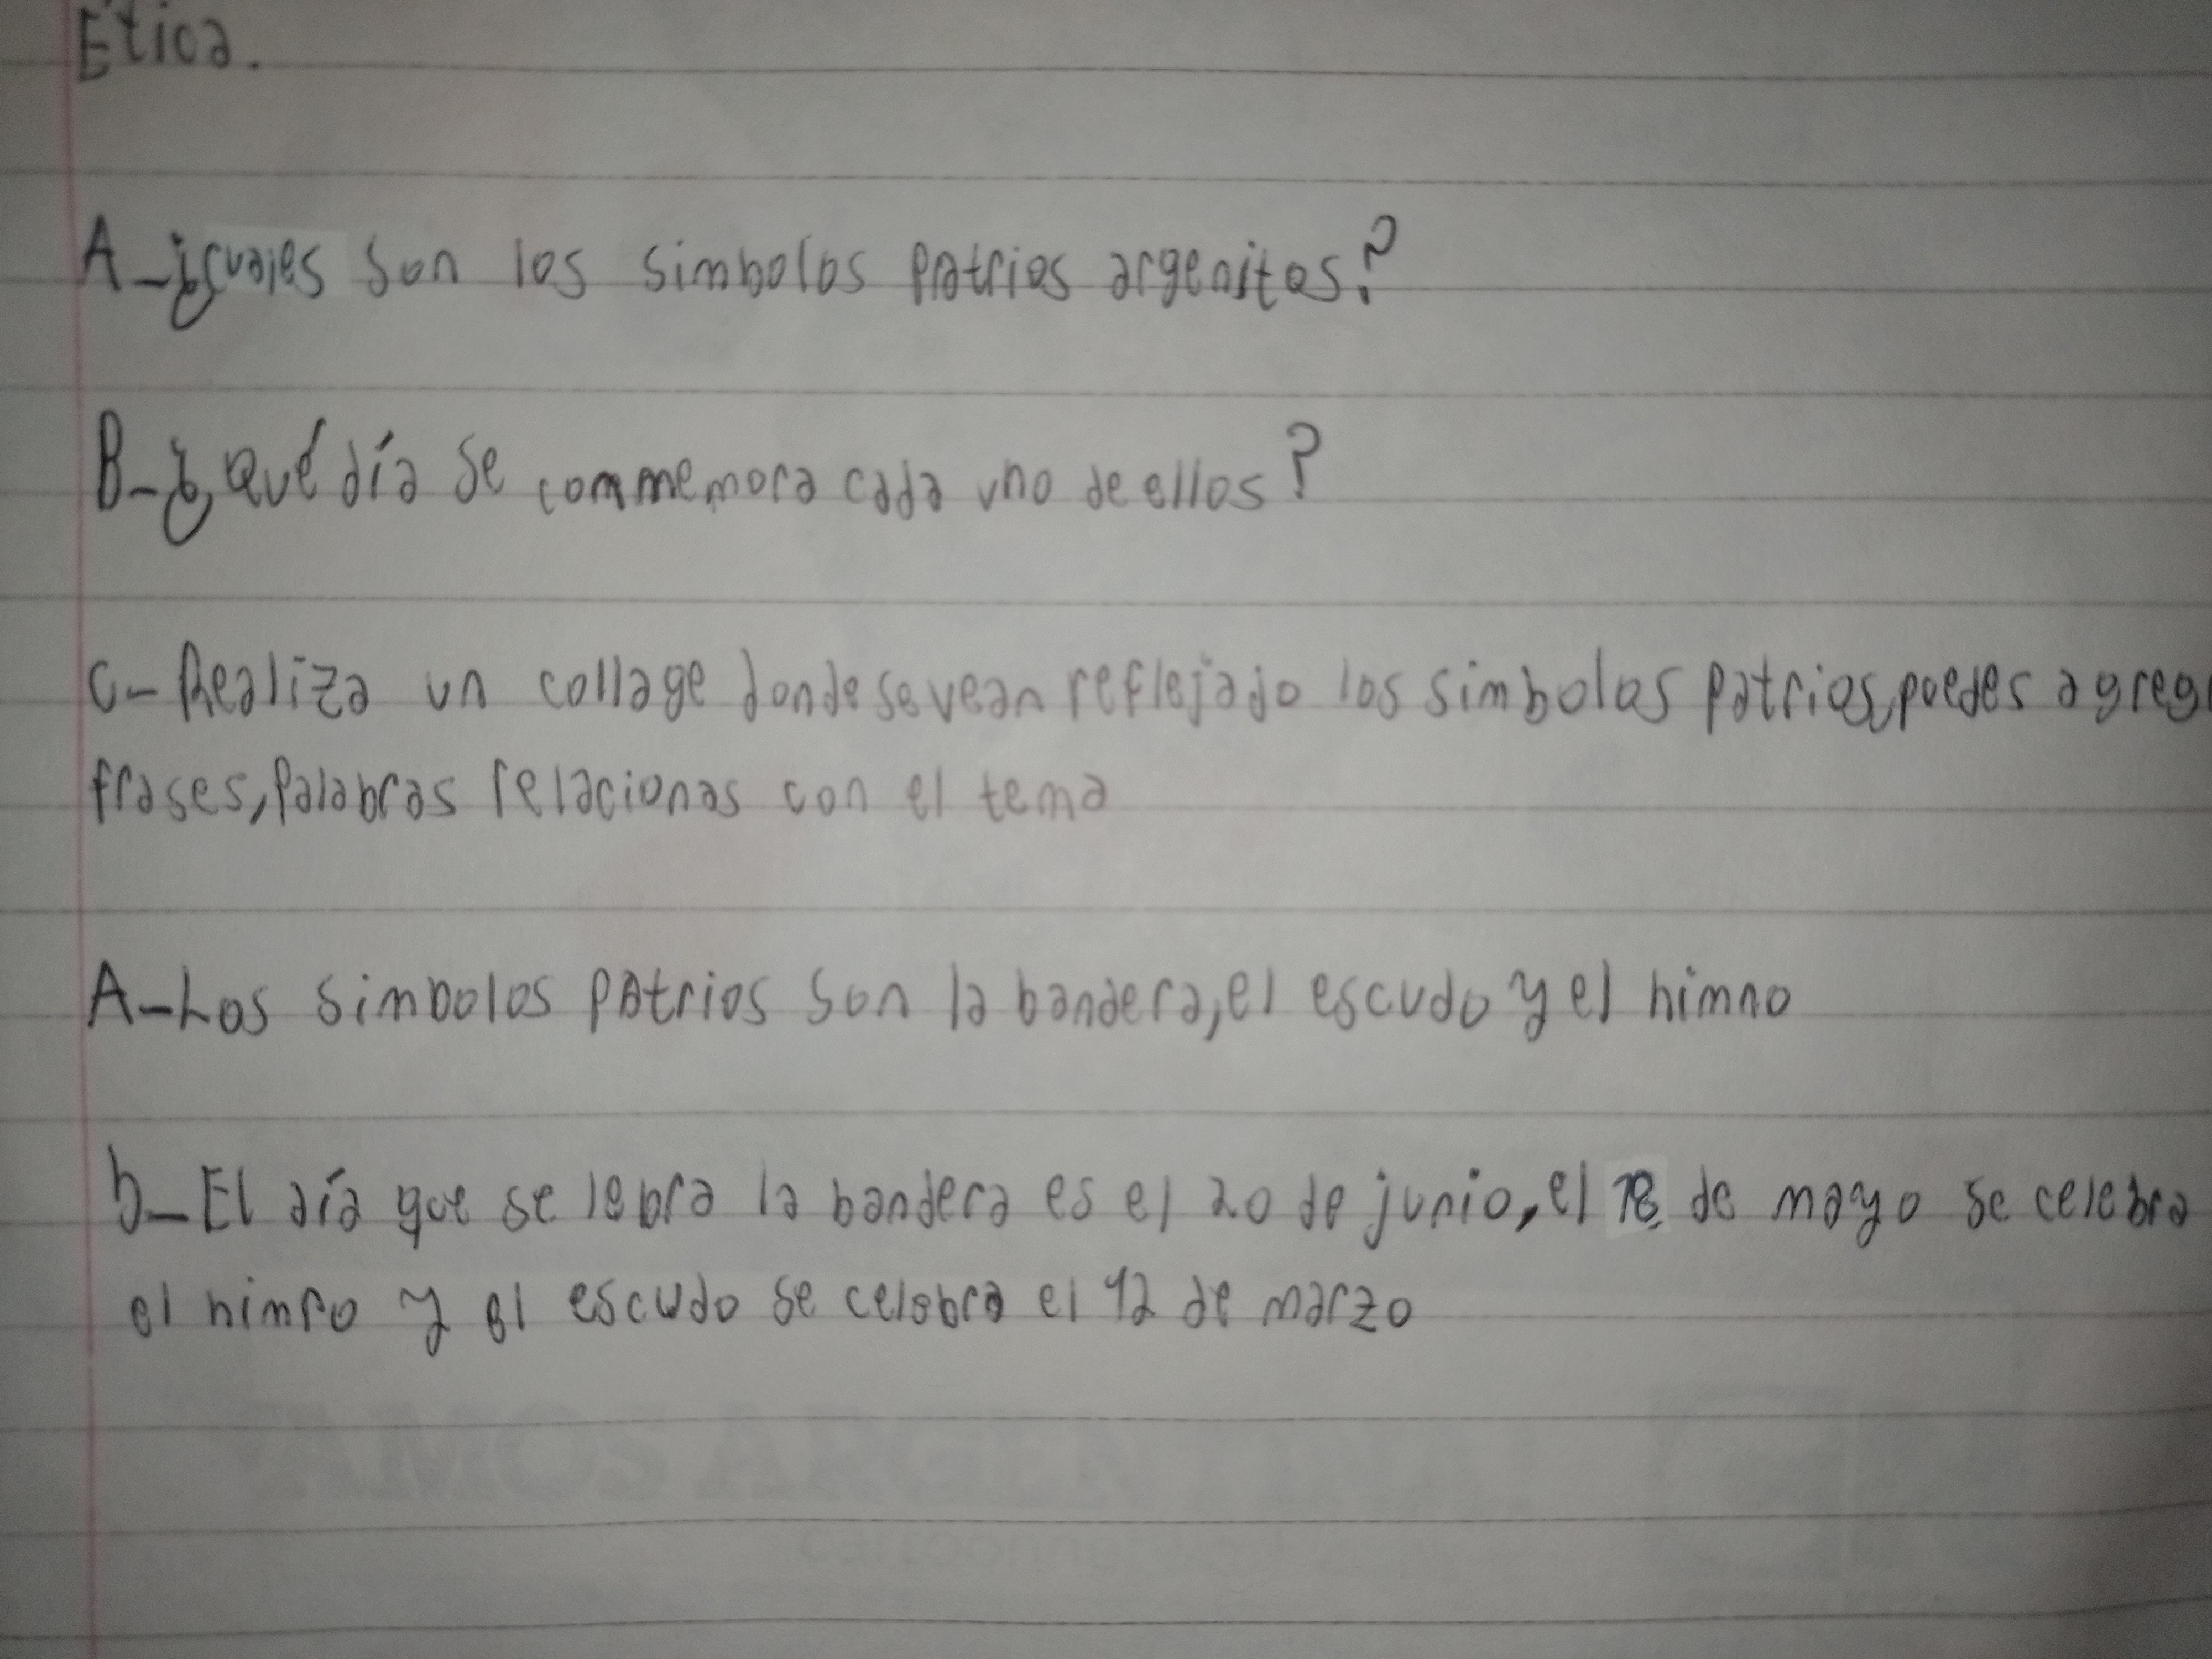 Etica.
A-¿cuales son los simbolos patrios argenitos?
B-¿Qué día se commemora cada uno de ellos?
C-Realiza un collage donde se vean reflejado los simbolos patrios, puedes agreg
frases, palabras relacionas con el tema
A-Los simbolos patrios son la bandera, el escudo y el himno
b-El día que se lebra la bandera es el 20 de junio, el 18 de mayo se celebra
el himno y el escudo se celebra el 12 de marzo